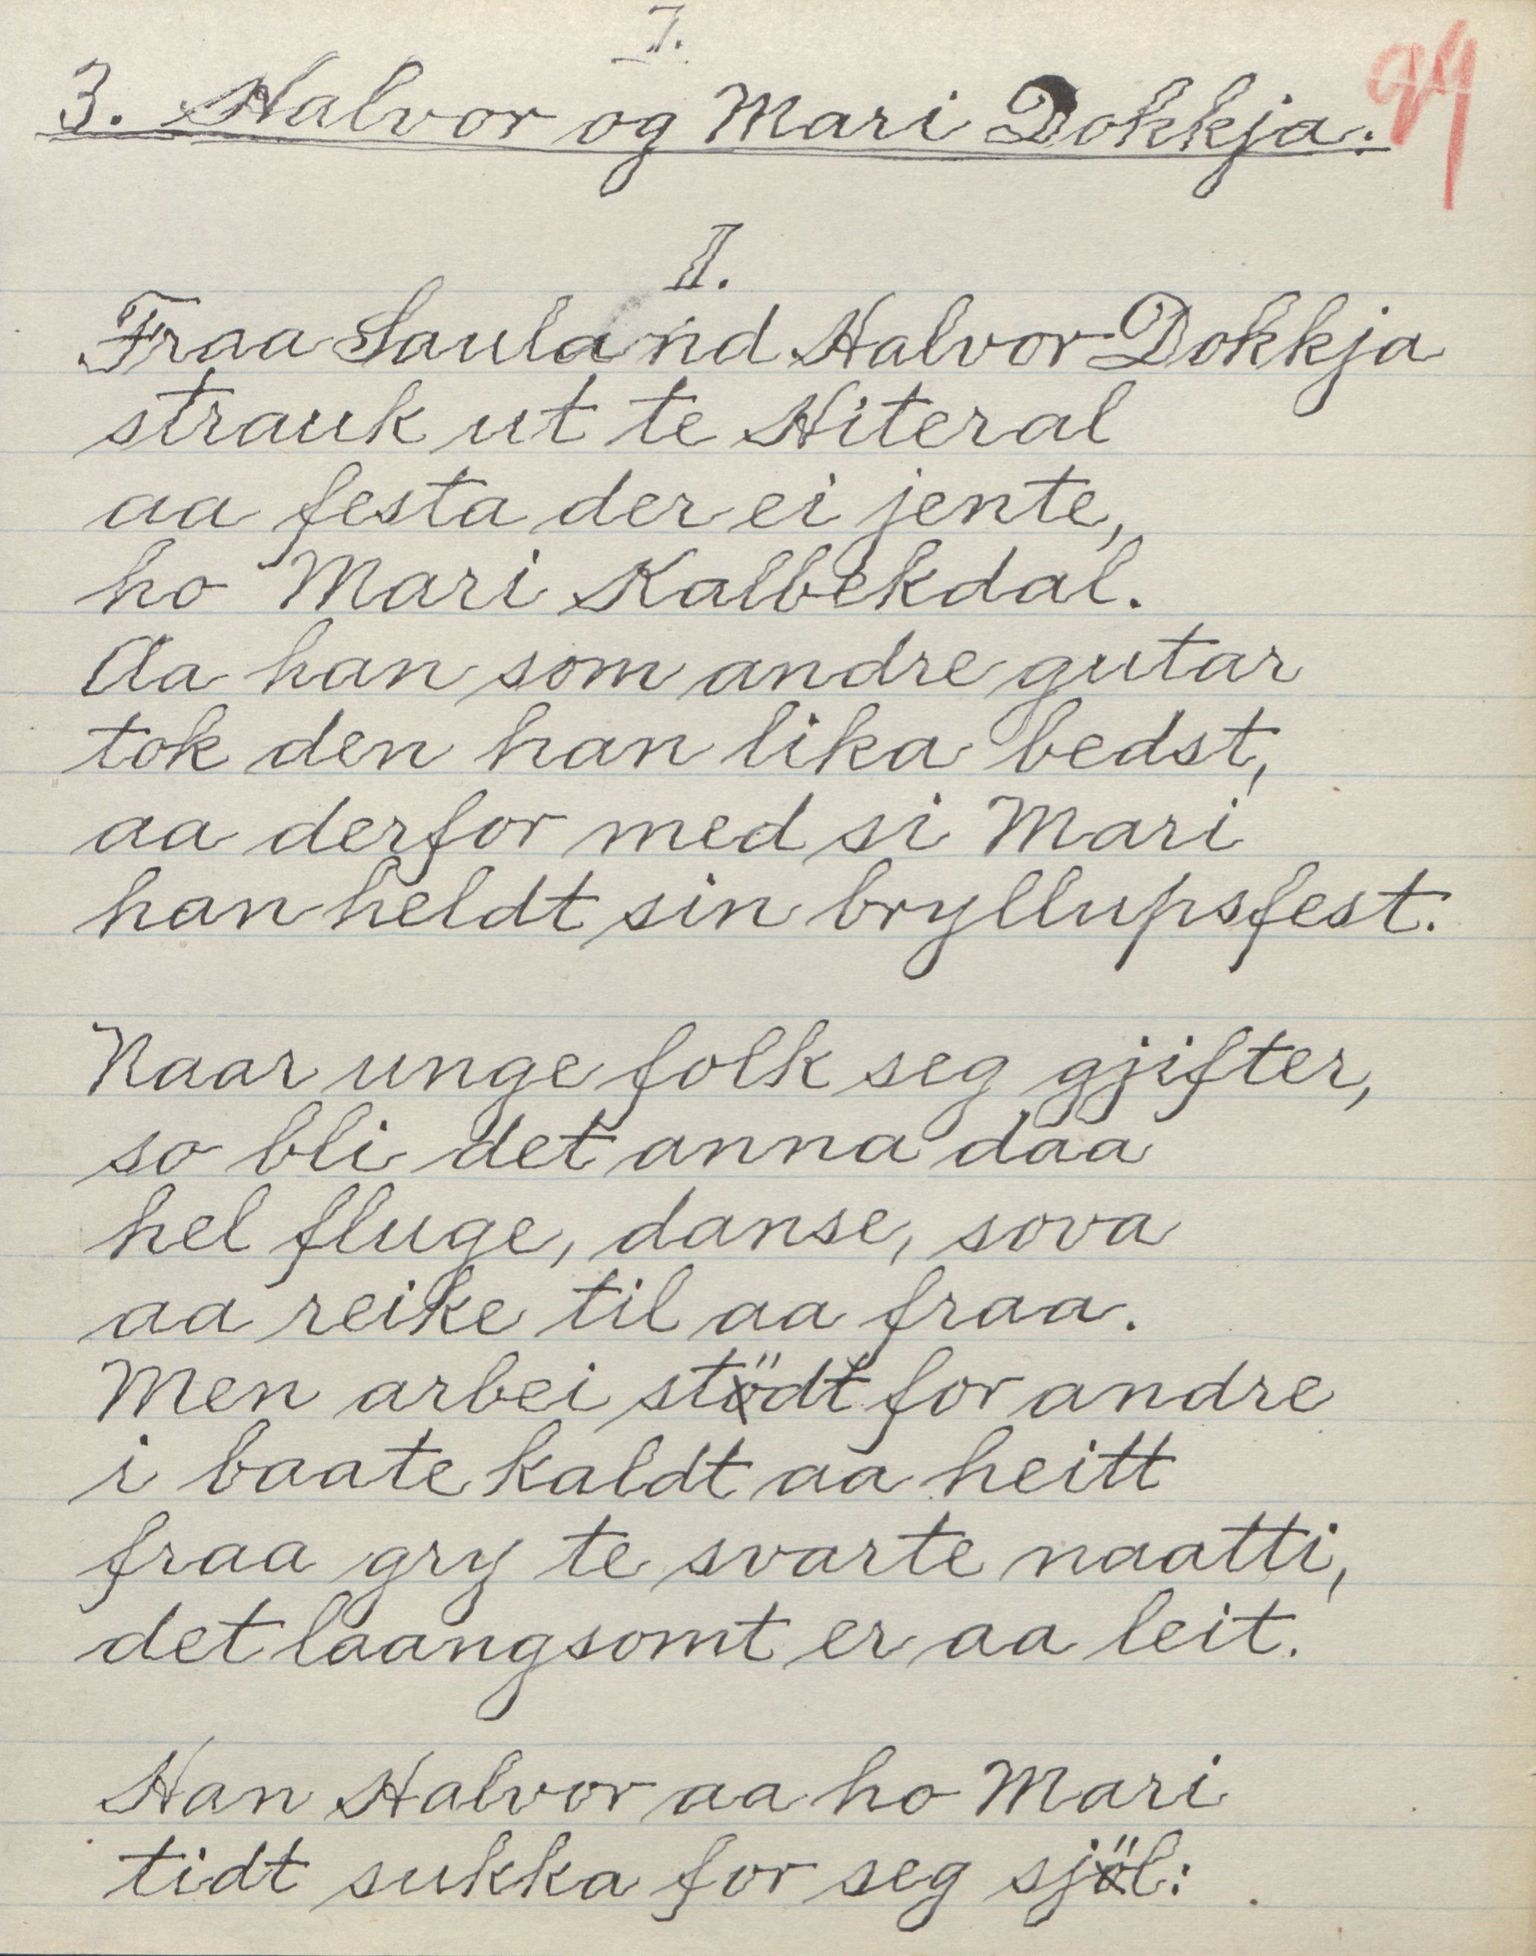 I.
3. Halvor og Mari Dokkja.
94
II.
Fraa Sauland Halvor Dokkja
strauk ut te Hiteral
aa festa der ei jente,
ho Mari Kalbekdal.
Aa han som andre gutar
tok den han lika bedst,
aa derfor med si Mari
han heldt sin bryllupsfest.
Naar unge folk seg gjifter,
so bli det anna daa
hel fluge, danse, sova
aa reike til aa fraa.
Men arbei stödt for andre
i baate kaldt aa heitt
fraa gry te svarte naatti,
det laangsomt er aa leit.
Han Halvor aa ho Mari
tidt sukka for seg sjöl: